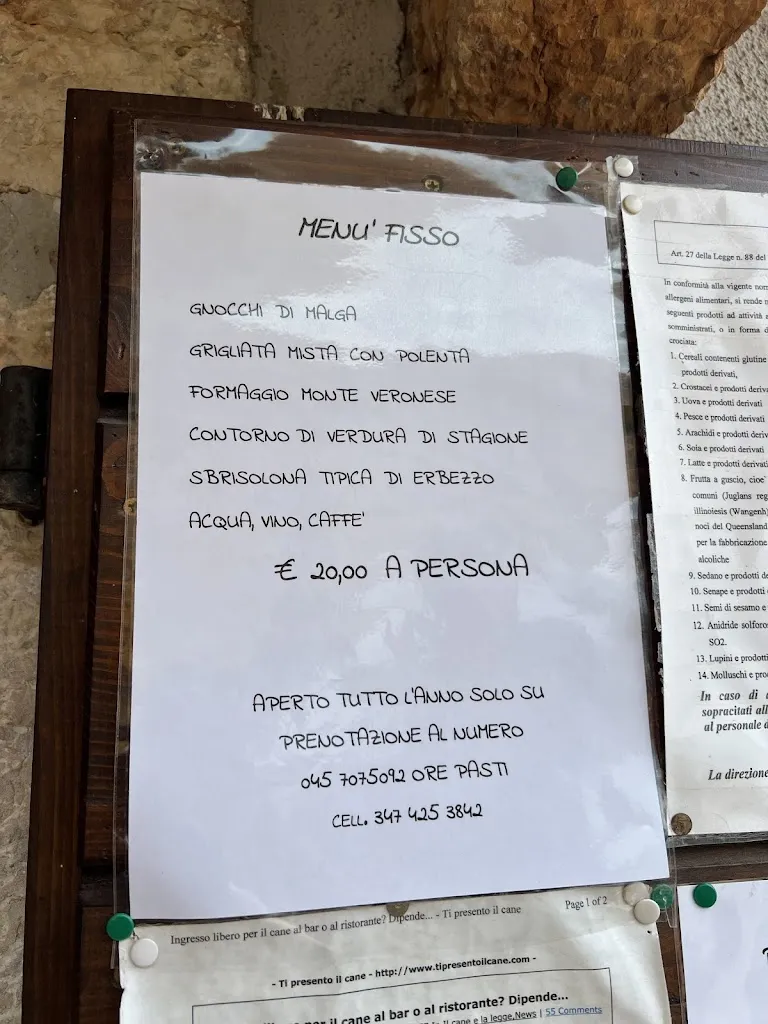 MENU' FISSO
GNOCCHI DI MALGA
GRIGLIATA MISTA CON POLENTA
FORMAGGIO MONTE VERONESE
CONTORNO DI VERDURA DI STAGIONE
SBRISOLONA TIPICA DI ERBEZZO
ACQUA, VINO, CAFFE'
€ 20,00 A PERSONA
APERTO TUTTO L'ANNO SOLO SU
PRENOTAZIONE AL NUMERO
045 7075092 ORE PASTI
CELL. 347 425 3842
Art. 27 della Legge n. 88 del
In conformità alla vigente
allergeni alimentari, si rende
seguenti prodotti ad attività
somministrati, o in forma
crociata:
1. Cereali contenenti glutine
prodotti derivati,
2. Crostacei e prodotti
3. Uova e prodotti derivati
4. Pesce e prodotti derivati
5. Arachidi e prodotti
6. Soia e prodotti derivati
7. Latte e prodotti derivati
8. Frutta a guscio, cioe'
comuni (Juglans
illinoiesis (Wangenh)
noci del Queensland
per la fabbricazione
alcoliche
9. Sedano e prodotti
10. Senape e prodotti
11. Semi di sesamo e
12. Anidride
SO2.
13. Lupini e prodotti
14. Molluschi e
In caso di
sopracitati
al personale
La direzione
Ingresso libero per il cane al bar o al ristorante? Dipende... - Ti presento il cane Page 1 of 2
- Ti presento il cane - http://www.tipresentoilcane.com -
per il cane al bar o al ristorante? Dipende...
Il cane e la legge,News | 55 Comments